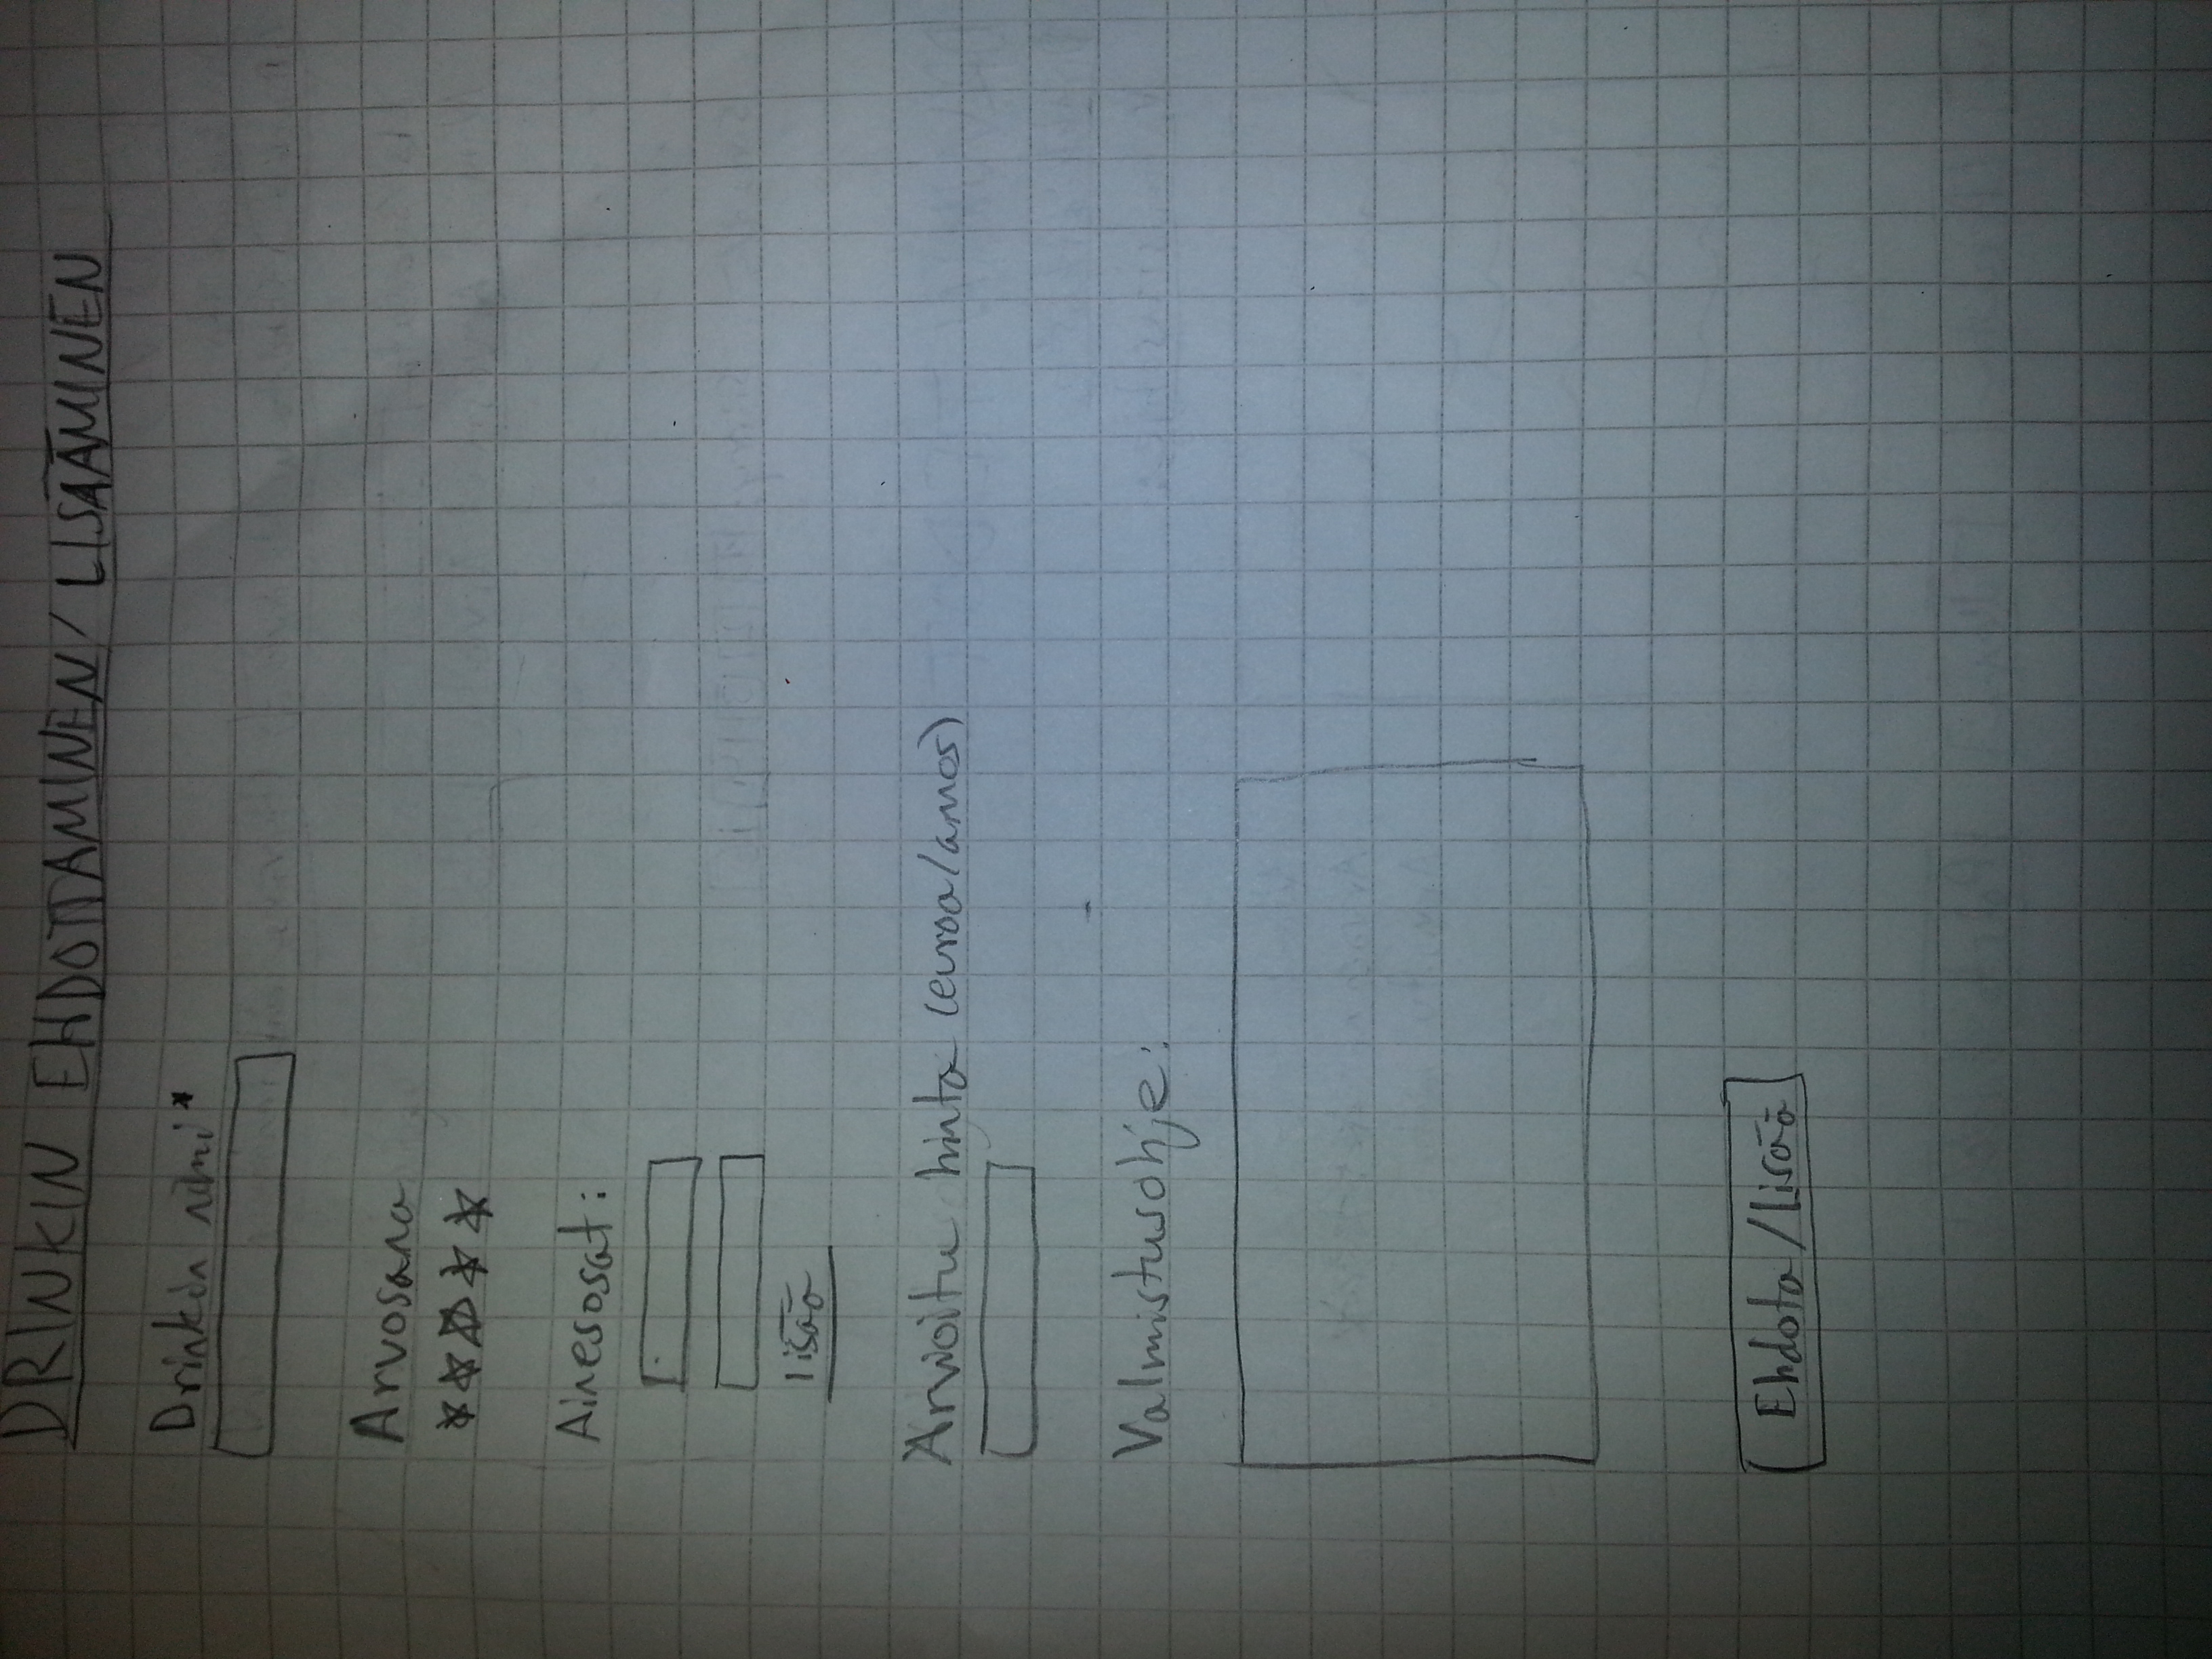 DRINKIN EHDOTTAMINEN / LISÄÄMINEN
Drinkin nimi *
Arvosana
☆☆☆☆☆
Ainesosat:
lisää
Arvioitu hinta (euroa/annos)
Valmistusohje:
Ehdota/Lisää